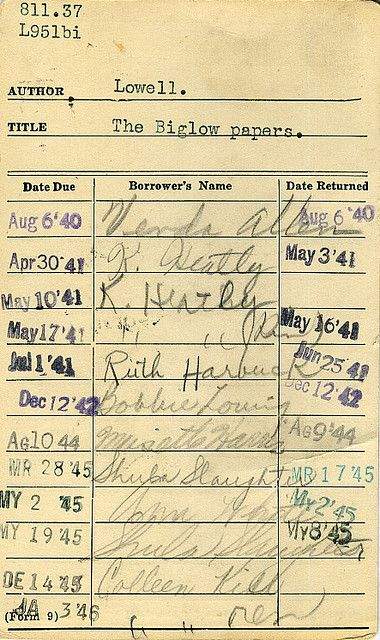 811.37
L951bi
AUTHOR Lowell.
TITLE The Biglow papers.
Date Due Borrower's Name Date Returned
Aug 6 '40 Allen Aug 6 '40
Apr 30 '41 K. Heatley May 3 '41
May 10 '41 K. Heatley
May 17 '41 " " (Ren) May 16 '41
Jul 1 '41 Ruth Harbuck Jun 25 '41
Dec 12 '42 Bobbie Loving Dec 12 '42
Ag 10 44 Ag 9 '44
MR 28 '45 Sheila Slaughter MR 17 '45
MY 2 '45 My 2 '45
MY 19 '45 Sheila Slaughter My 8 '45
DE 14 '45 Colleen Kill
JA 3 '46 " " ren
(Form 9)